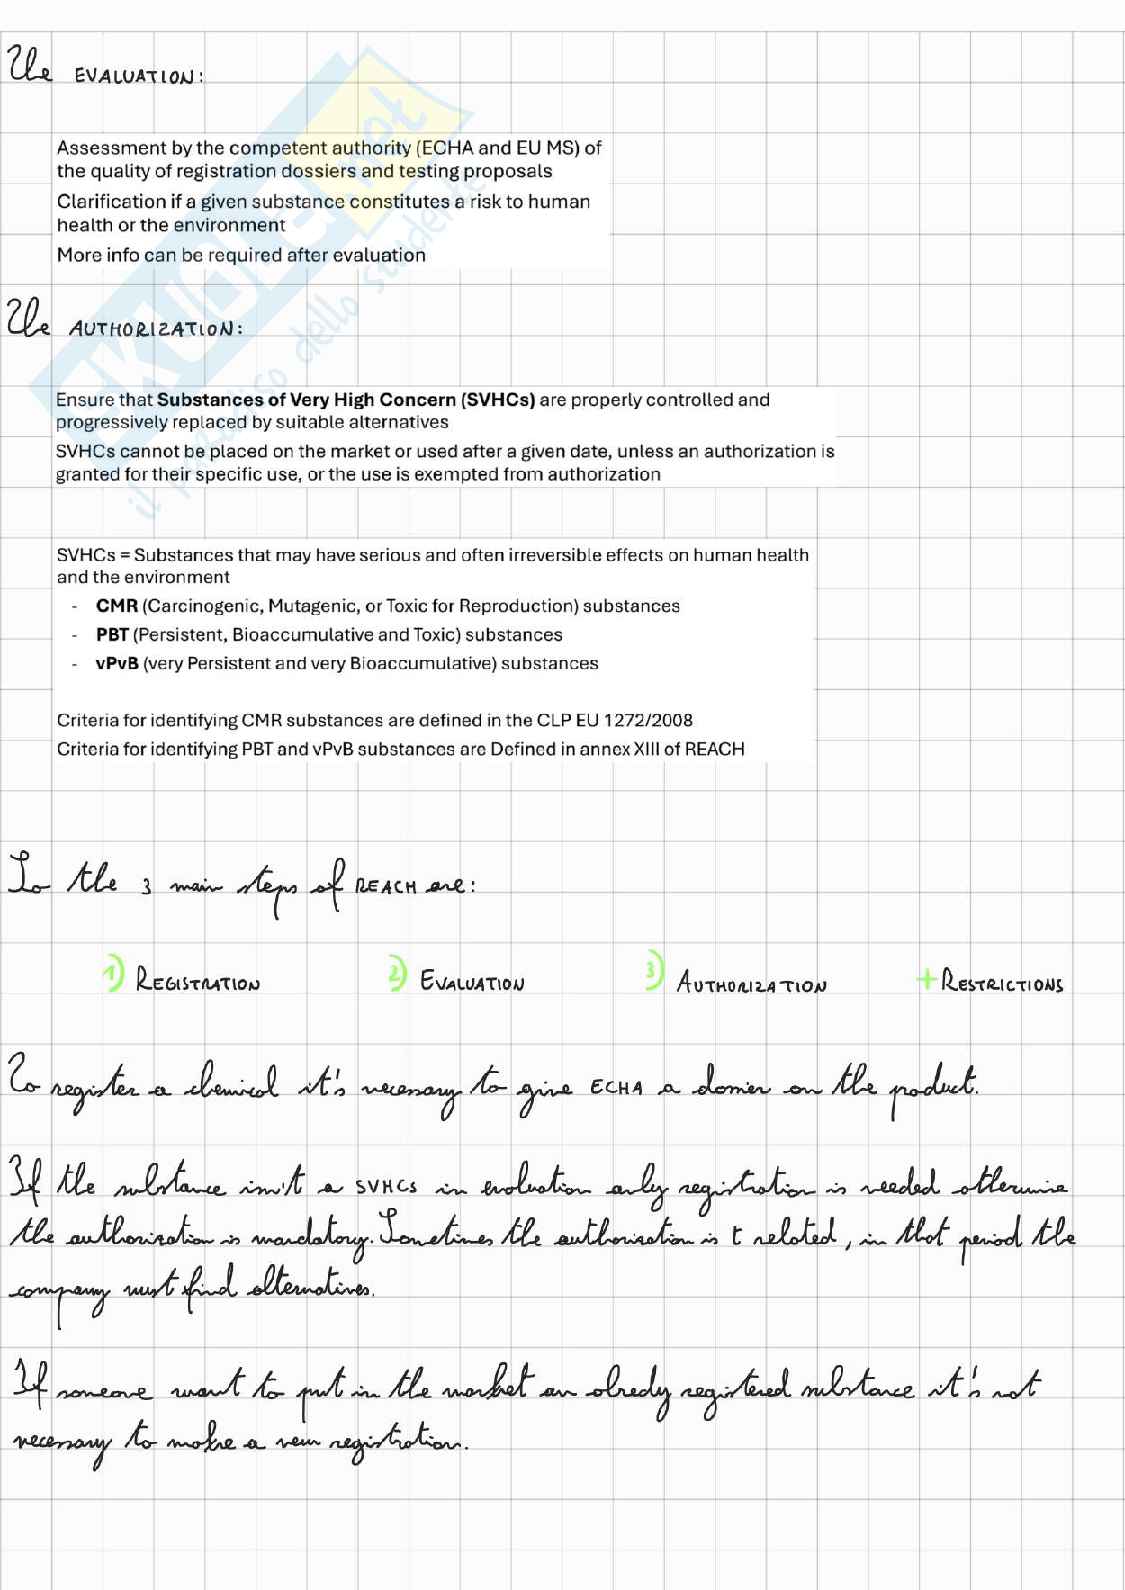 The EVALUATION:
Assessment by the competent authority (ECHA and EU MS) of
the quality of registration dossiers and testing proposals
Clarification if a given substance constitutes a risk to human
health or the environment
More info can be required after evaluation
The AUTHORIZATION:
Ensure that Substances of Very High Concern (SVHCs) are properly controlled and
progressively replaced by suitable alternatives
SVHCs cannot be placed on the market or used after a given date, unless an authorization is
granted for their specific use, or the use is exempted from authorization
SVHCs = Substances that may have serious and often irreversible effects on human health
and the environment
- CMR (Carcinogenic, Mutagenic, or Toxic for Reproduction) substances
- PBT (Persistent, Bioaccumulative and Toxic) substances
- vPvB (very Persistent and very Bioaccumulative) substances
Criteria for identifying CMR substances are defined in the CLP EU 1272/2008
Criteria for identifying PBT and vPvB substances are Defined in annex XIII of REACH
So the 3 main steps of REACH are:
1) REGISTRATION 2) EVALUATION 3) AUTHORIZATION + RESTRICTIONS
To register a chemical it's necessary to give ECHA a dossier on the product.
If the substance isn't a SVHCS in evaluation only registration is needed otherwise
the authorisation is mandatory. Sometimes the authorisation is t related, in that period the
company must find alternatives.
If someone want to put in the market an alredy registered substance it's not
necessary to make a new registration.
skuola.net
il paradiso dello studente